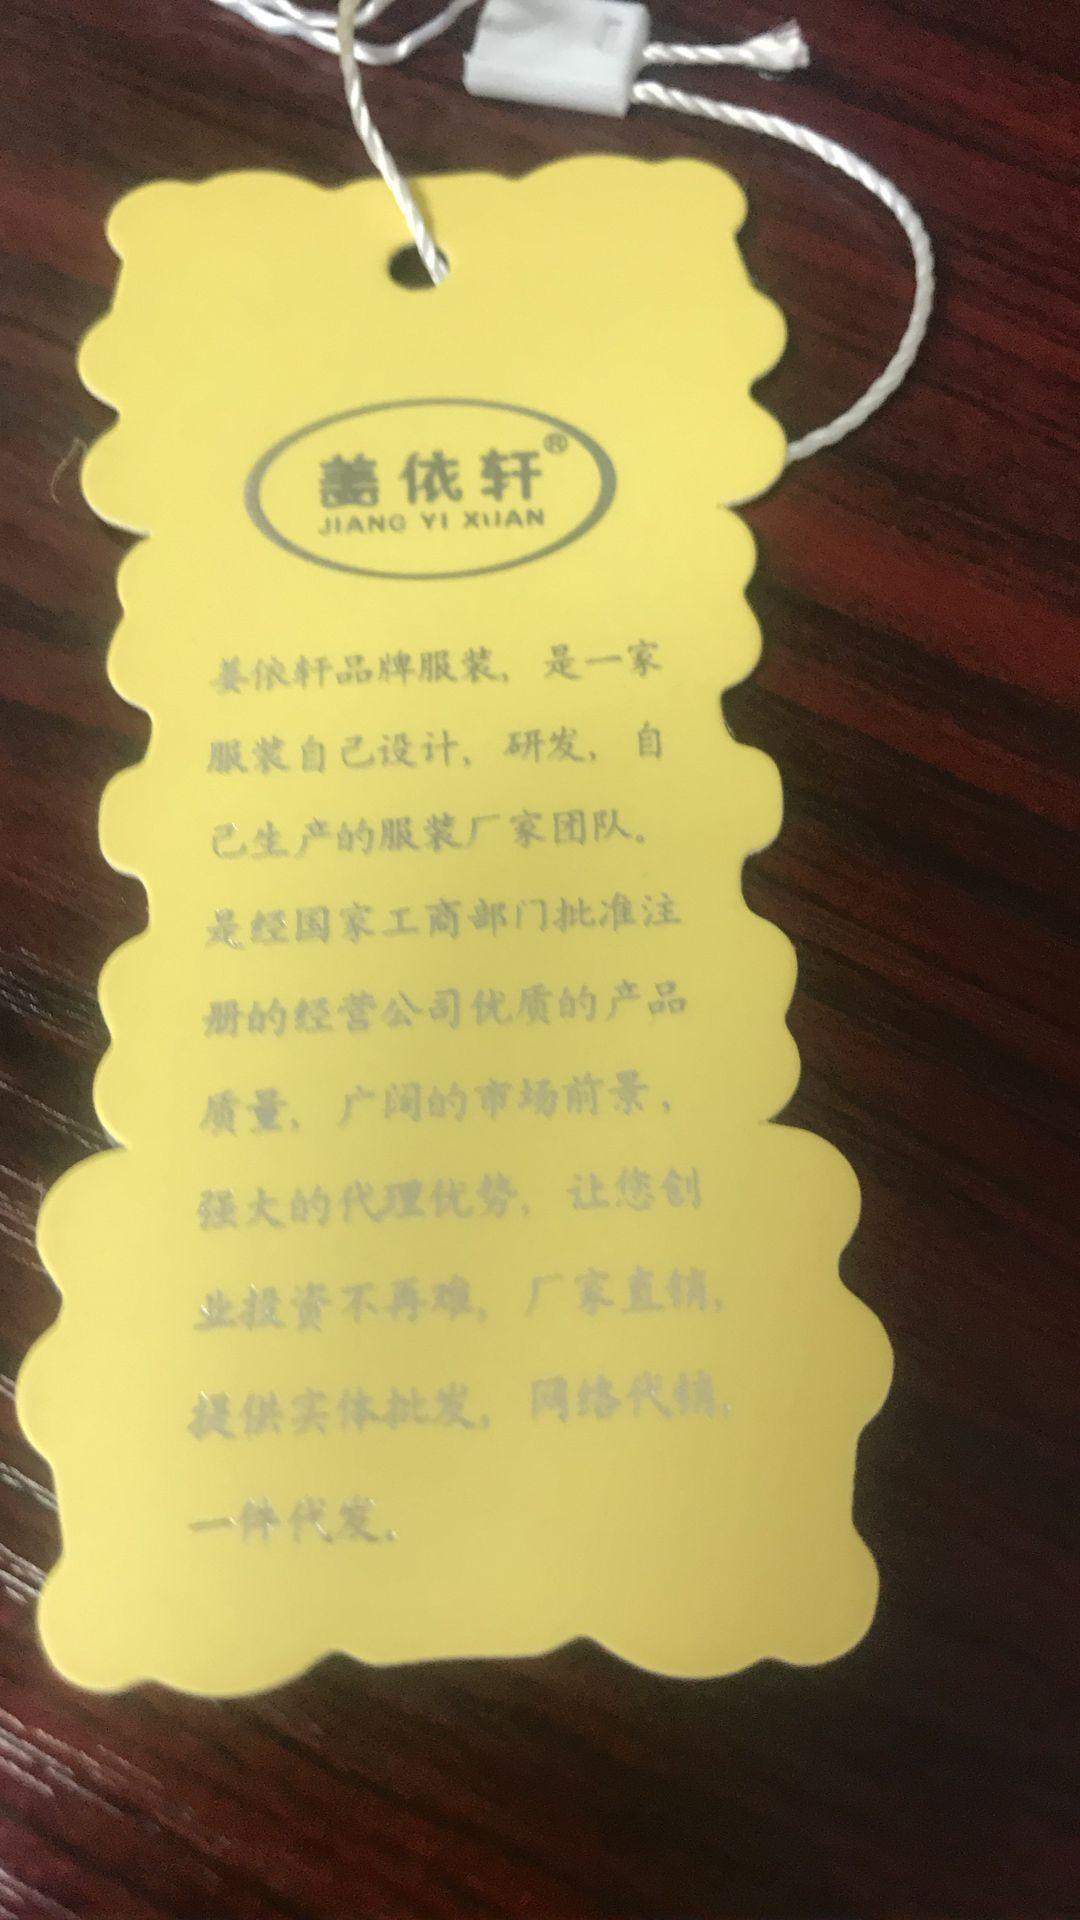 姜依轩®
JIANG YI XUAN
姜依轩品牌服装，是一家
服装自己设计，研发，自
己生产的服装厂家团队。
是经国家工商部门批准注
册的经营公司优质的产品
质量，广阔的市场前景，
强大的代理优势，让您创
业投资不再难，厂家直销，
提供实体批发，网络代销，
一件代发。